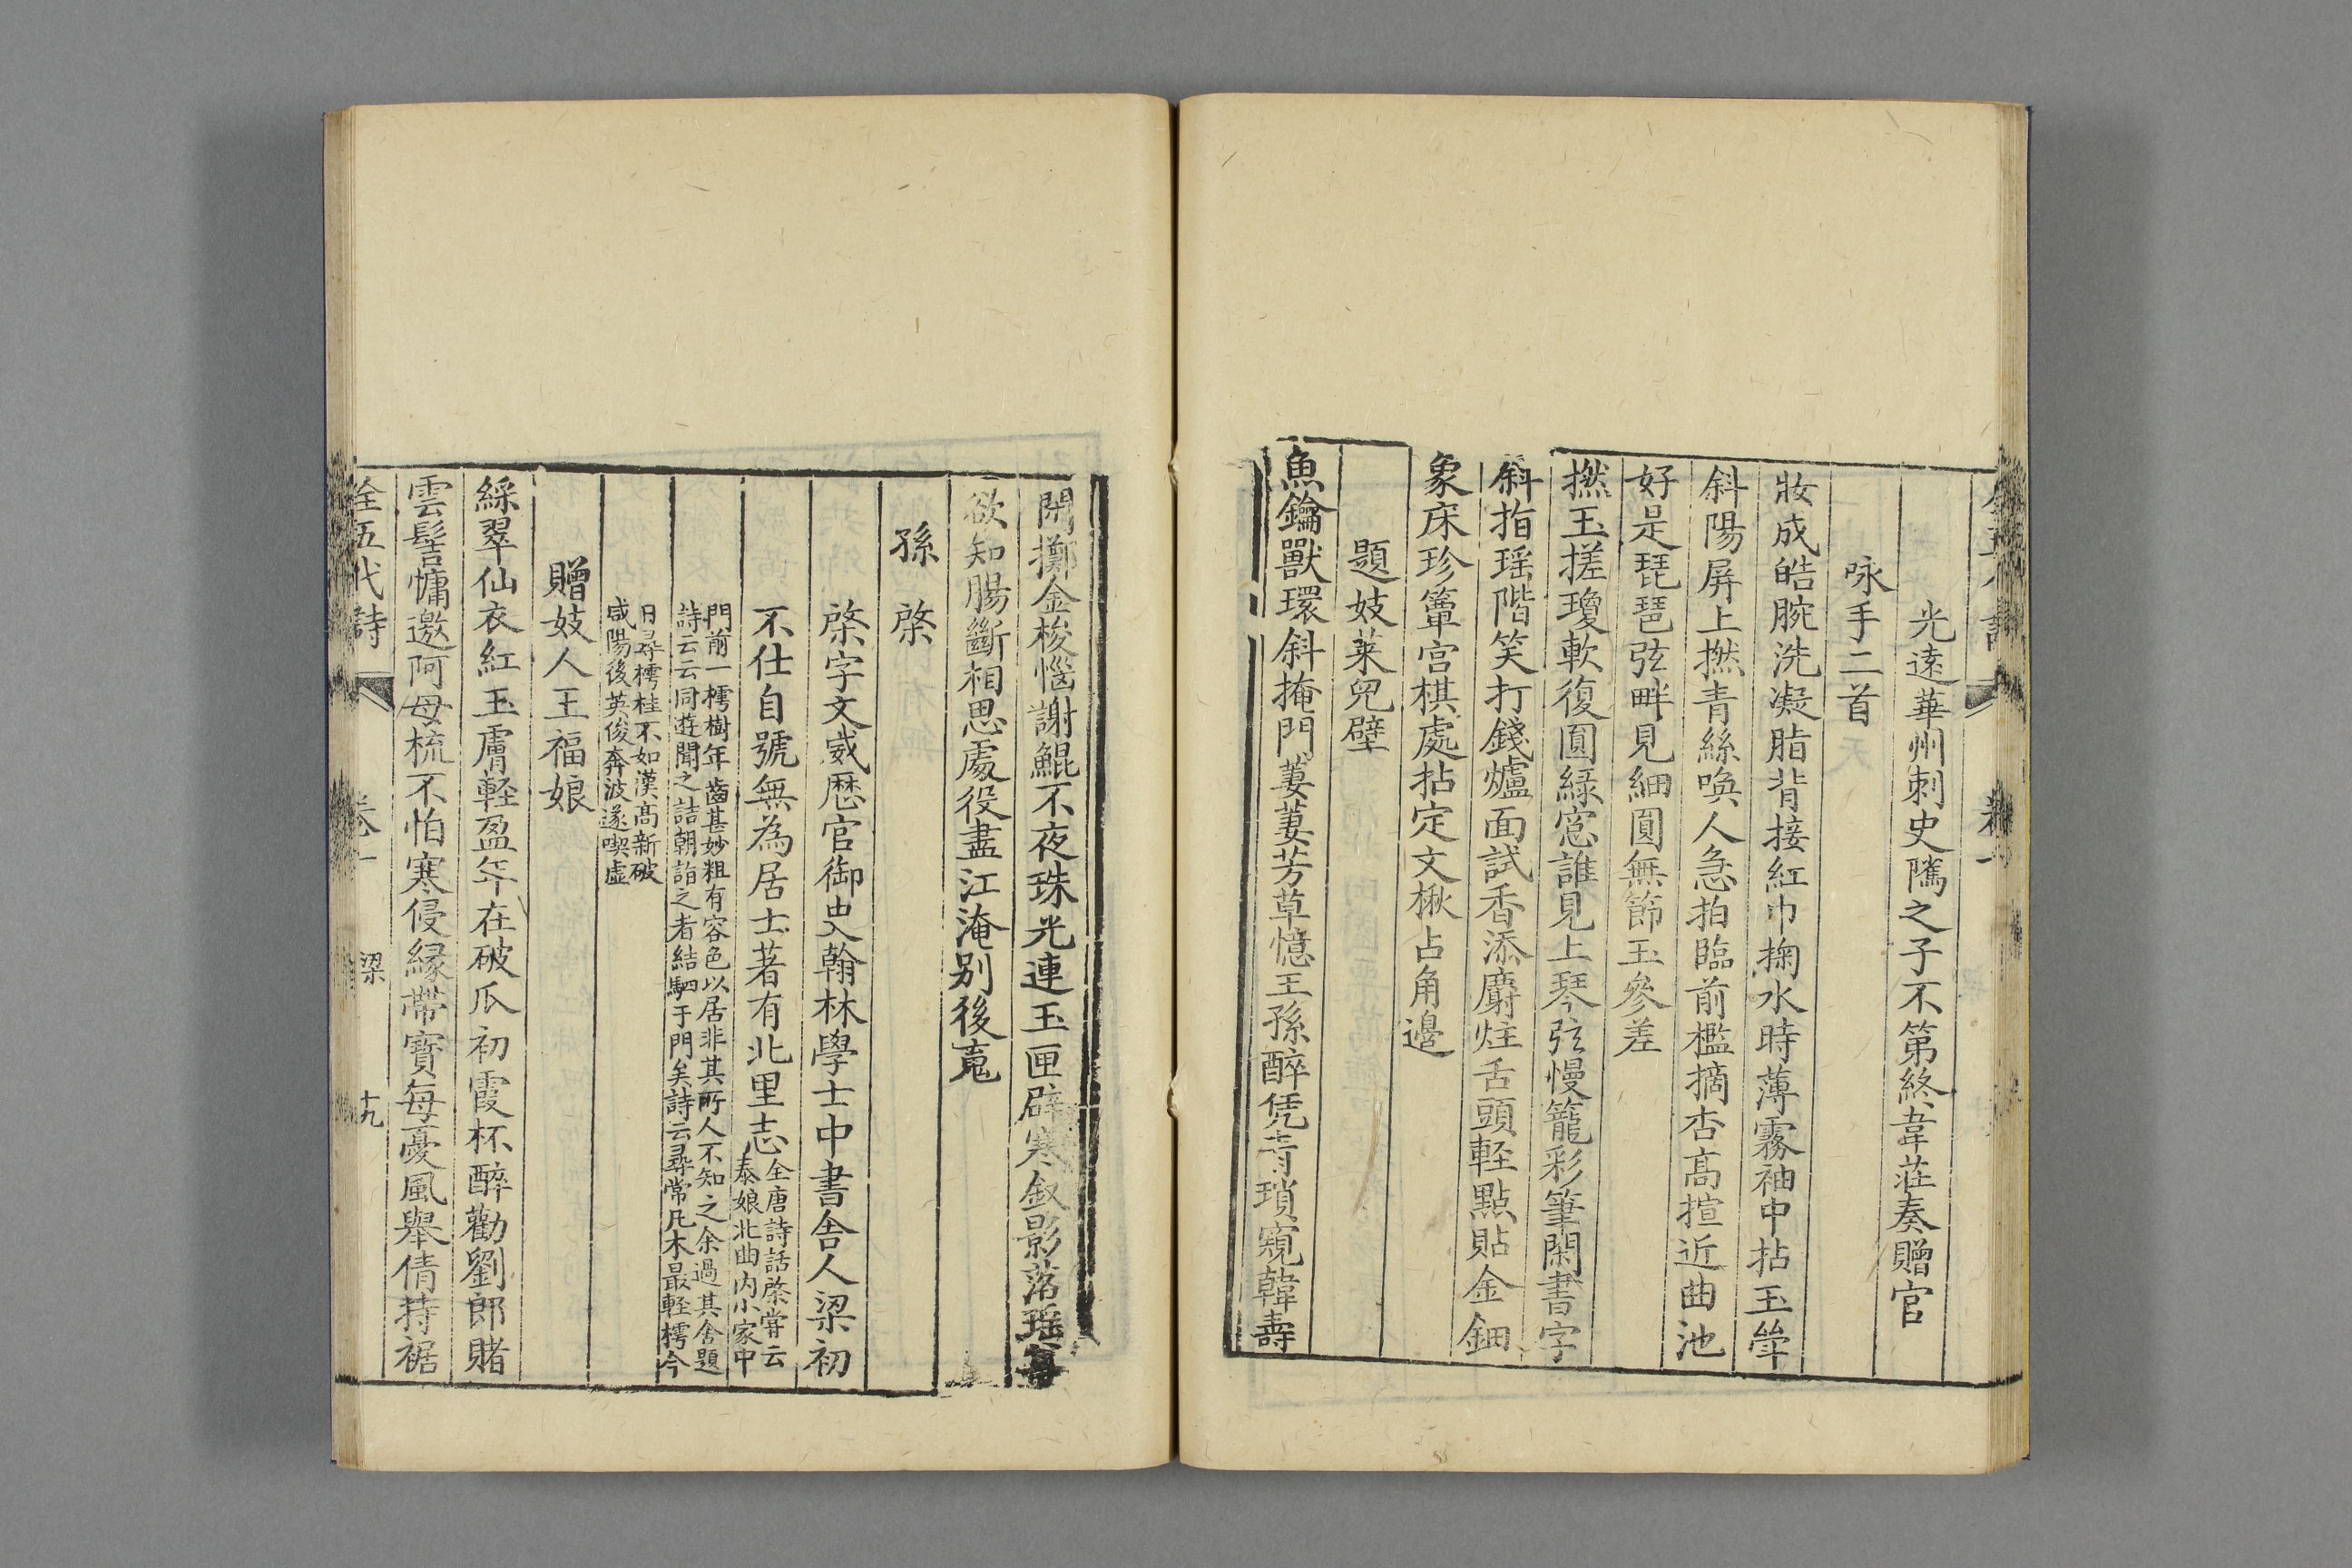 光遠華州刺史隲之子不第終韋莊奏贈官
咏手二首
妝成皓腕洗凝脂背接紅巾掬水時薄霧袖中拈玉斝
斜陽屏上撚青絲喚人急拍臨前檻摘杏高揎近曲池
好是琵琶弦畔見細圓無節玉參差
撚玉搓瓊軟復圓綠窓誰見上琴弦慢籠彩筆閑書字
斜指瑶階笑打錢爐面試香添麝炷舌頭輕點貼金鈿
象床珍簟宮棋處拈定文楸占角邊
題妓萊兒壁
魚鑰獸環斜掩門萋萋芳草憶王孫醉凭青瑣窺韓壽
閒擲金梭惱謝鯤不夜珠光連玉匣辟寒釵影落瑶尊
欲知腸斷相思處役盡江淹别後䰟
孫棨
棨字文威厯官御史翰林學士中書舍人梁初
不仕自號無為居士著有北里志
全唐詩話棨甞云
泰娘北曲内小家中
門前一樗樹年齒甚妙粗有容色以居非其所人不知之余過其舍題
詩云云同遊聞之詰朝詣之者結駟于門矣詩云尋常凡木最輕樗今
日尋樗桂不如漢高新破
咸陽後英俊奔波遂喫虚
贈妓人王福娘
綵翠仙衣紅玉膚輕盈年在破瓜初霞杯醉勸劉郎賭
雲髻慵邀阿母梳不怕寒侵緣帶寶每憂風舉倩持裾
全五代詩
卷一
梁
十九